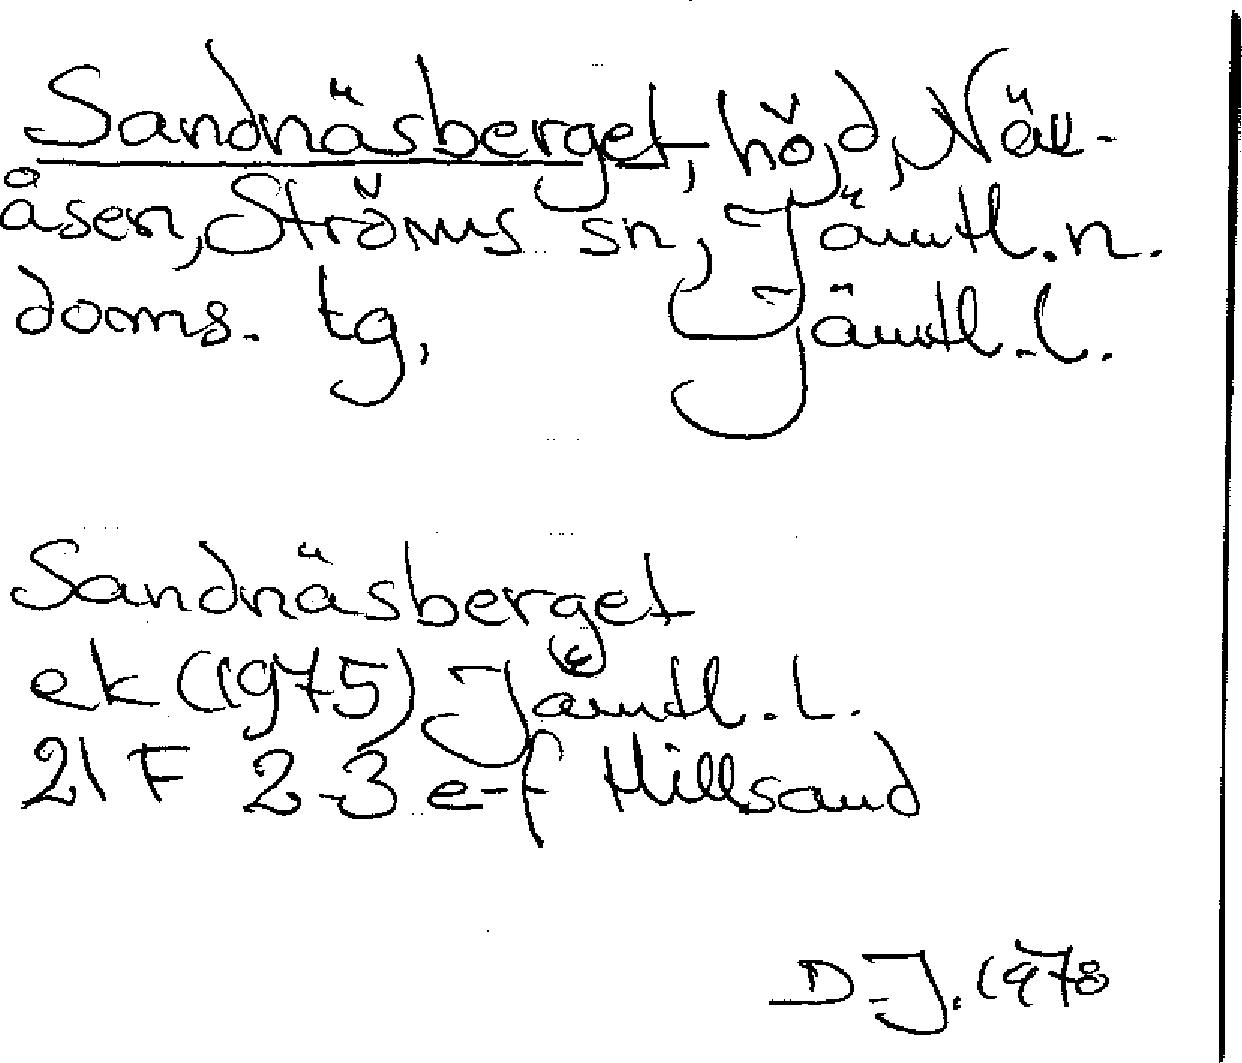 Sandnäsberget, höjd, Näs-
åsen, Ströms sn, Jämtl. n.
doms. tg, Jämtl. l.
Sandnäsberget
ek (1975) Jämtl. l.
21 F 2-3 e-f Hillsand
D-J. 1978